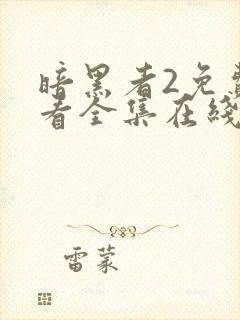 暗黑者2免费
看全集在线
雷蒙